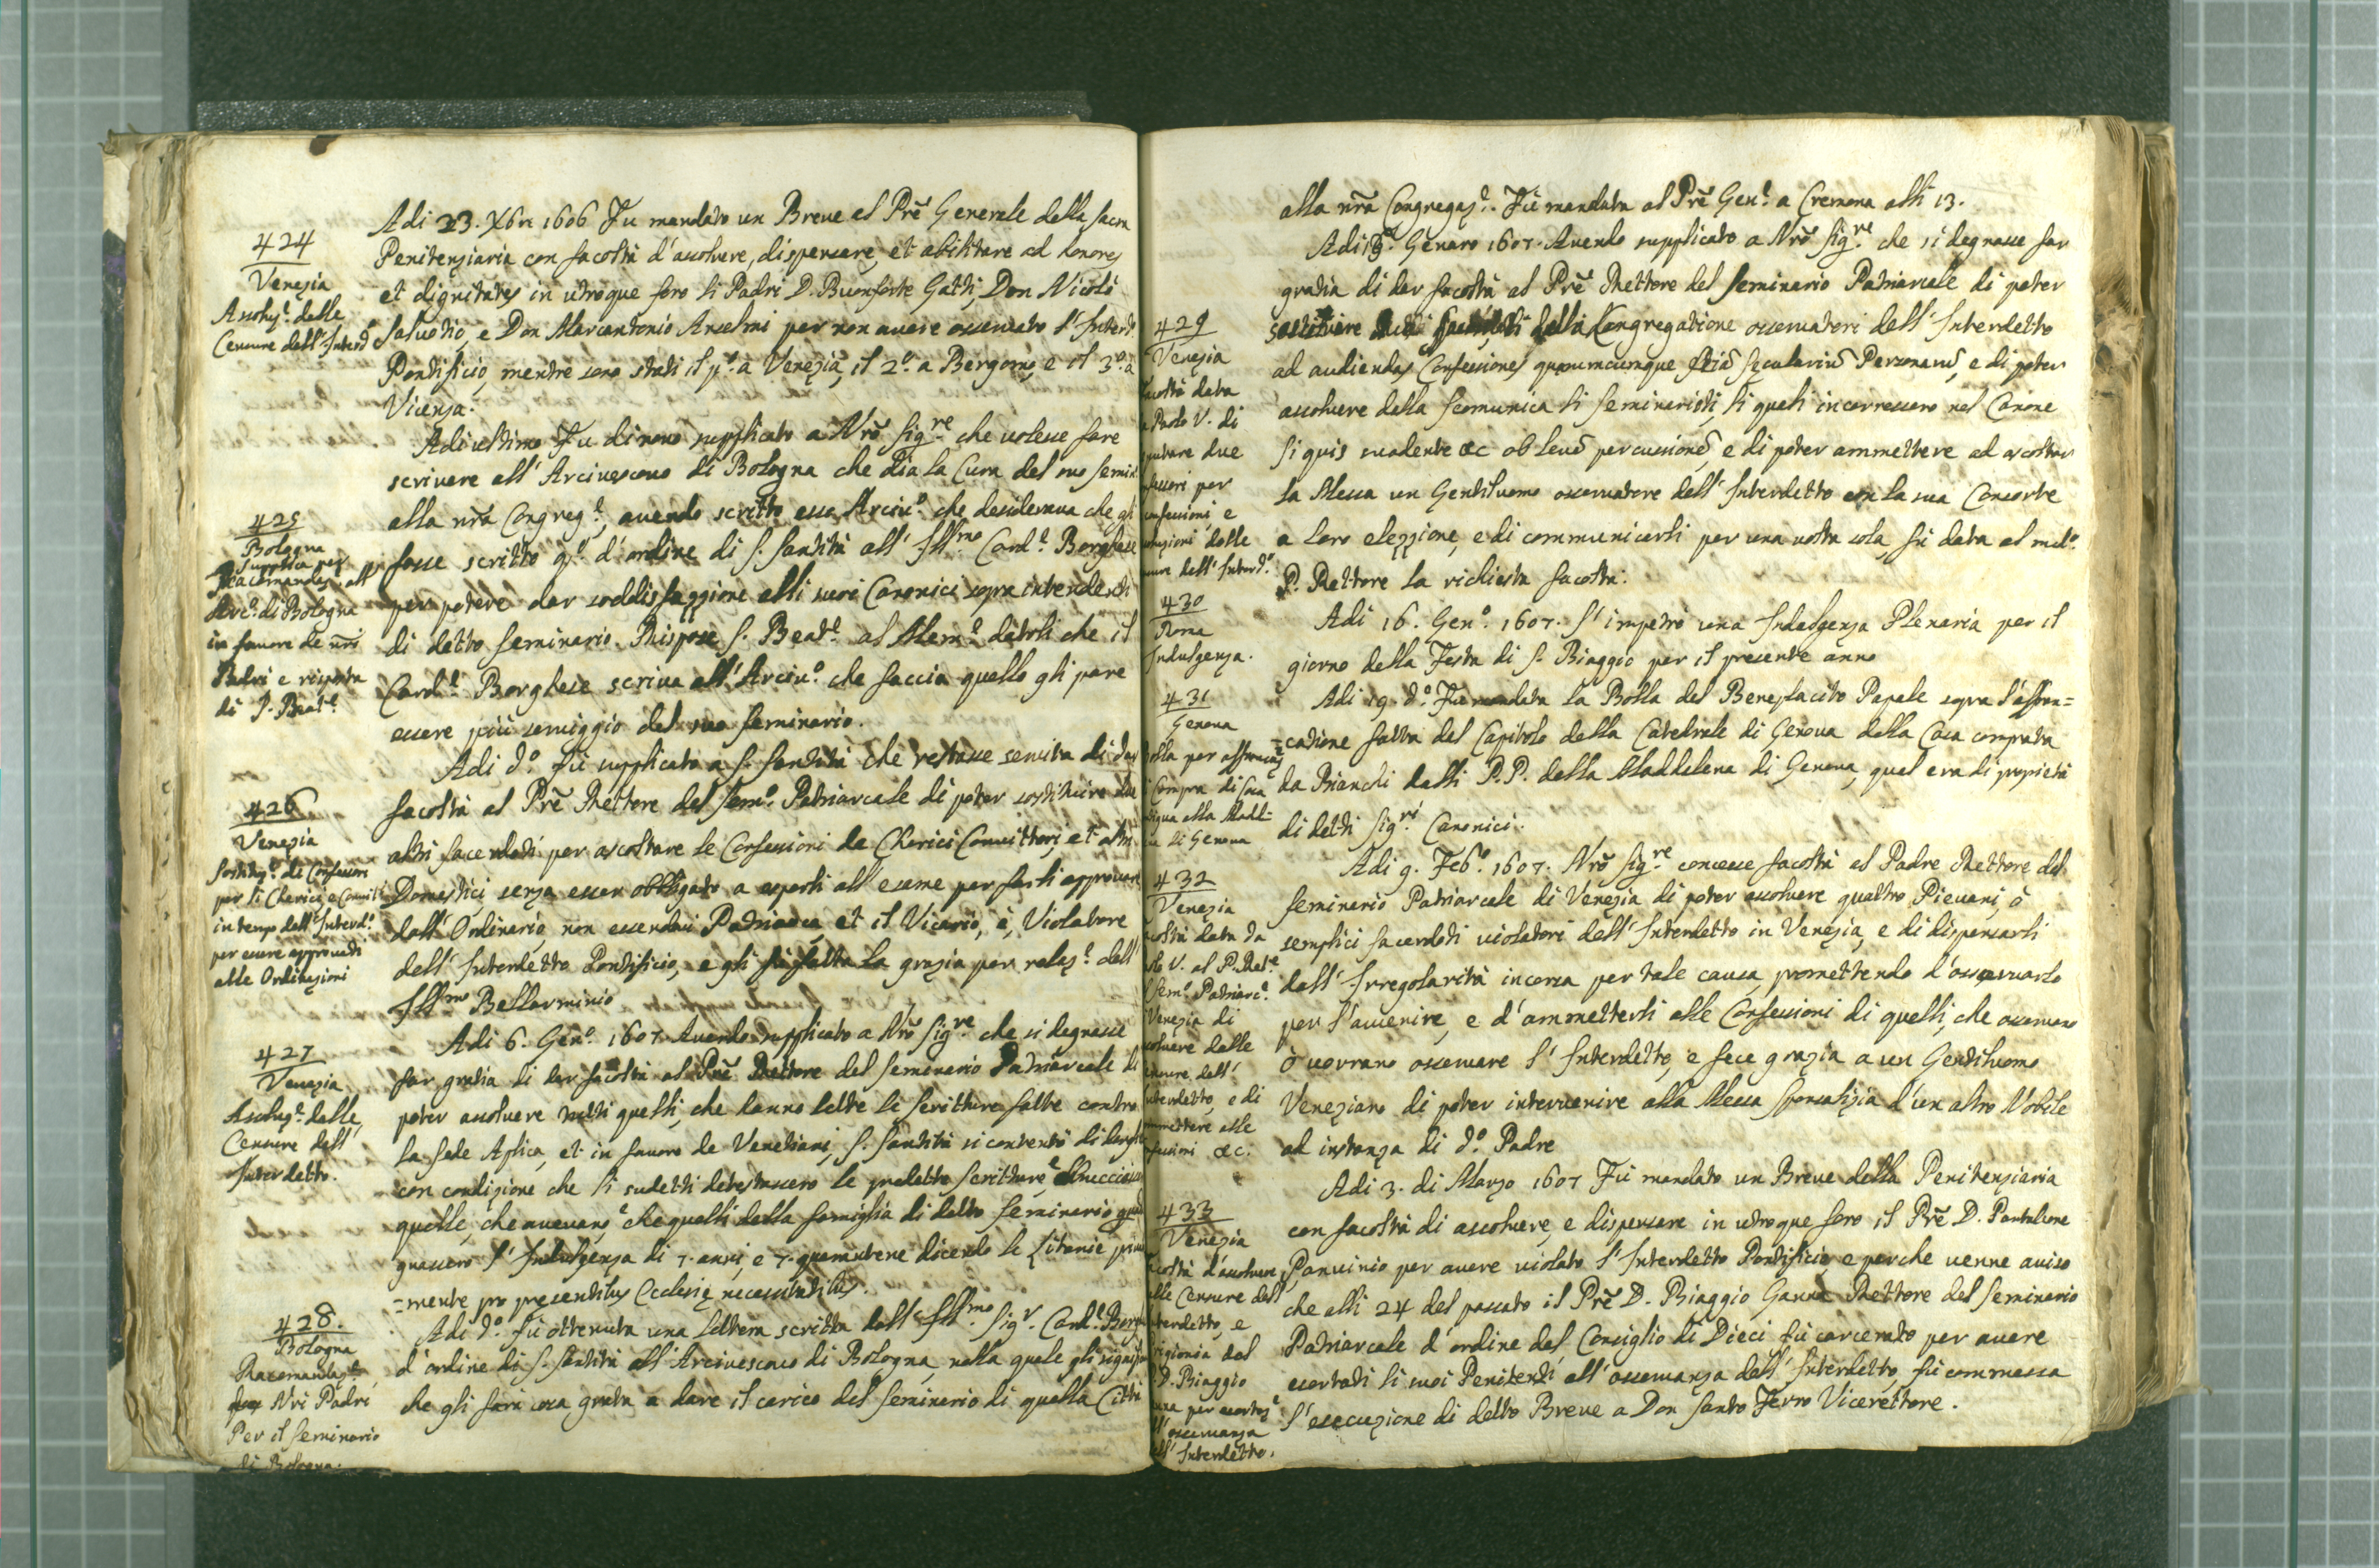 424
Venezia
Assoluz.e delle
Censure dell'Interd.o
Adi 23. Xbre 1606 Fu mandato un Breve al Prē Generale della sacra
Penitenziaria con facoltà d'assolvere, dispensare, et abilitare ad honores
et dignitates in utroque foro li Padri D. Buonforte Gatti, Don Nicolò
Salvetio, e Don Marcantonio Anselmi per non avere osservato l'Interd.o
Pontificio, mentre sono stati il p.o a Venezia, il 2.o a Bergomo, e il 3.o a
Vicenza.
425
Bologna
Supplica per
racomandaz. all'
Arc.o di Bologna
in favore de nr̄i
Padri e risposta
di S. Beat.e
Adi ultimo Fu di novo supplicato a Nrō Sig.re che volesse fare
scrivere all'Arcivescovo di Bologna che dia la Cura del suo semin.
alla nrā Congreg.e, avendo scritto esso Arciv.o che desiderava che gli
fosse scritto q.o d'ordine di S. Santità all'Ill.mo Card.e Borghese
per potere dar soddisfazzione alli suoi Canonici sopra intendenti
di detto seminario. Rispose S. Beat.e al Mem.e datoli che il
Card.e Borghese scriva all'Arciv.o che faccia quello gli pare
essere più serviggio del suo seminario.
426
Venezia
Sostituz.e di Confessori
per li Cherici, e Convitt.
in tempo dell'Interd.o
per essere approvati
alle Ordinazioni
Adi d.o fù supplicato a S. Santità che restasse servita di dar
facoltà al Prē Rettore del Sem.o Patriarcale di poter sostituire due
altri sacerdoti per ascoltare le Confessioni de Cherici Convittori, et altri
Domestici senza esser obbligato a esporli all'esame per farli approvare
dall'Ordinario, non essendovi Patriarca, et il Vicario, è, Violatore
dell'Interdetto Pontificio, e gli fù fatta la grazia per relaz.e dell'
Ill.mo Bellarminio
427
Venezia
Assoluz.e dalle
Censure dell'
Interdetto.
Adi 6. Gen.o 1607 Avendo supplicato a Nrō Sig.re che si degnasse
far gratia di dar facoltà al Prē Rettore del seminario Patriarcale di
poter assolvere tutti quelli, che hanno lette le scritture fatte contro
la Sede Aplica, et in favore de Venetiani, S. Santità si contentò di darglie
con condizione che li sudetti detestassero le predette scritture, e
quelle, che avevano, e che quelli della famiglia di detto seminario
gnassero l'Indulgenza di 7. anni, e 7. quarantene dicendo le Litanie
=mente pro presentibus Ecclesię necessitatibus.
428.
Bologna
Racomandaz.e
Nri Padri
Per il Seminario
di Bologna.
Adi d.o fù ottenuta una lettera scritta dall'Ill.mo Sig.r Card.e Borg
d'ordine di S. Santità all'Arcivescovo di Bologna, nella quale gli signifi
che gli sarà cosa grata a dare il carico del seminario di quella Città
alla nrā Congregaz.e. Fù mandata al Prē Gen.e a Cremona alli 13.
429
Venezia
facoltà data
Paolo V. di
putare due
fessori per
confessioni, e
luzioni dalle
sure dell'Interd.o
Genaro 1607. Avendo supplicato a Nrō Sig.re che si degnasse far
gratia di dar facoltà al Prē Rettore del Seminario Patriarcale di poter
sostituire della Congregatione osservatori dell'Interdetto
ad audiendas Confessiones quorumcumque etiā secularium Personarū, e di poter
assolvere dalla scomunica li seminaristi, li quali incorressero nel Canone
Si quis suadente &c ob levē percussionē, e di poter ammettere ad ascoltar
la Messa un Gentiluomo osservatore dell'Interdetto con la sua Consorte
a loro elezzione, e di communicarli per una volta sola, fù data al med.o
P. Rettore la richiesta facoltà.
430
Roma
Indulgenza.
Adi 16. Gen.o 1607. S'impetrò una Indulgenza Plenaria per il
giorno della Festa di S. Biaggio per il presente anno
431
Genova
olla per affrancaz.
Compra di Casa
tigua alla Madd=
a di Genova
Adi 19. d.o Fù mandata la Bolla del Beneplacito Papale sopra l'affran=
=catione fatta dal Capitolo della Catedrale di Genova della Casa comprata
da Bianchi dalli P.P. della Maddalena di Genova, qual era di propietà
di detti Sig.ri Canonici.
432
Venezia
coltà data da
olo V. al P. Ret.e
Sem.o Patriarc.e
Venezia di
solvere dalle
ensure dell'
nterdetto, e di
mmettere alle
fessioni &c.
Adi 9. Feb.o 1607. Nrō Sig.re concesse facoltà al Padre Rettore del
seminario Patriarcale di Venezia di poter assolvere quattro Pievani, ò
semplici sacerdoti violatori dell'Interdetto in Venezia, e di dispensarli
dall'Irregolarità incorsa per tale causa, promettendo d'osservarlo
per l'avvenire, e d'ammetterli alle Confessioni di quelli, che osservano
ò vorranno osservare l'Interdetto, e fece grazia a un Gentiluomo
Veneziano di poter intervenire alla Messa sponsalizia d'un altro Nobile
ad instanza di d.o Padre
433
Venezia
coltà d'assolvere
alle Censure dell'
nterdetto, e
rigionia del
D. Biaggio
per esortaz.e
ll'osservanza
ell'Interdetto.
Adi 3. di Marzo 1607 Fù mandato un Breve della Penitenziaria
con facoltà di assolvere, e dispensare in utroque foro il Prē D. Pantaleone
Panvinio per avere violato l'Interdetto Pontificio, e perche venne aviso
che alli 24 del passato il Prē D. Biaggio Ganna Rettore del seminario
Patriarcale d'ordine del Consiglio di Dieci fù carcerato per avere
esortati li suoi Penitenti all'osservanza dell'Interdetto, fù commessa
l'esecuzione di detto Breve a Don Santo Ferro Vicerettore.